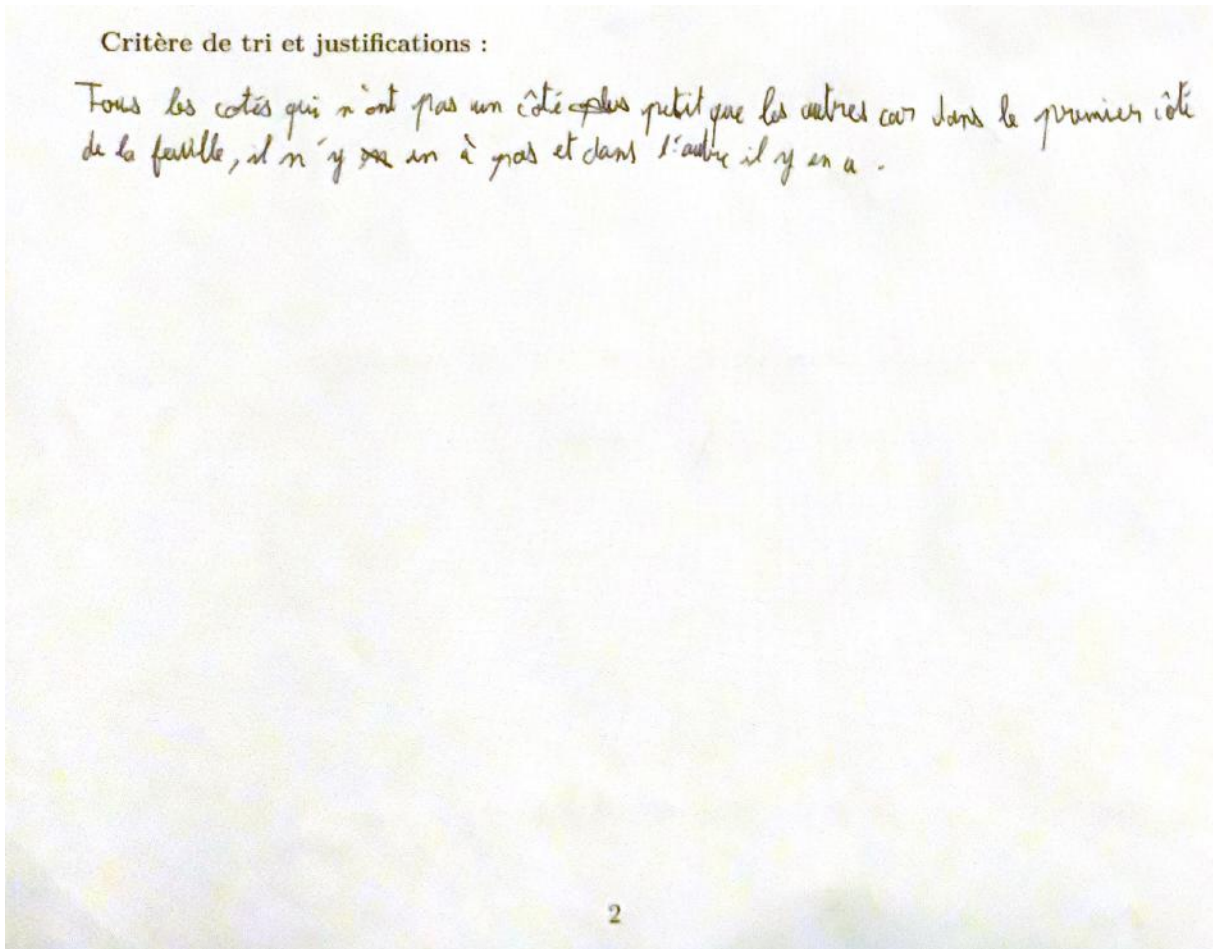 Critère de tri et justifications :
Tous les cotés qui n'ont pas un côté plus petit que les autres car dans le premier côté
de la feuille, il n'y en à pas et dans l'autre il y en a .
2